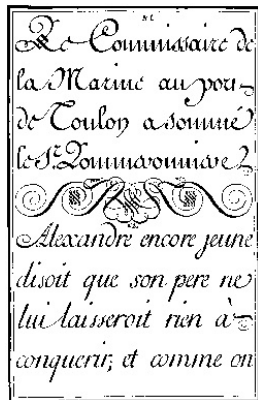 Le Commissaire de
la Marine au port
de Toulon a sommé
le Sr.
Alexandre encore jeune
disoit que son pere ne
lui laisseroit rien à
conquerir; et comme on